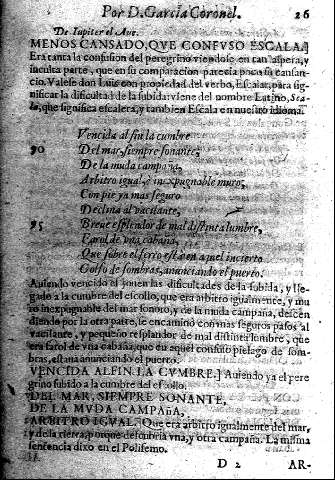 Por D. Garcia Coronel. 26
De Iupiter el Aue.
MENOS CANSADO, QVE CONFVSO ESCALA.]
Era tanta la confusion del peregrino viendose en tan aspera, y
inculta parte, que en su comparacion parecia poca su cansan-
cio. Valese don Luis con propiedad del verbo, Escalar, para sig-
nificar la dificultad de la subida: viene del nombre Latino, Sca-
la, que significa escalera, y tambien Escala en nuestro idioma.
Vencida al fin la cumbre
90 Del mar, siempre sonante,
De la muda campaña,
Arbitro igual, è inexpugnable muro,
Con pie ya mas seguro
Declina al vacilante,
95 Breue esplendor de mal distinta lumbre,
Farol de vna cabaña,
Que sobre el ferro està en aquel incierto
Golfo de sombras, anunciando el puerto.
Auiendo vencido el jouen las dificultades de la subida, y lle-
gado a la cumbre del escollo, que era arbitro igualmente, y mu
ro inexpugnable del mar sonoro, y de la muda campaña, decen
diendo por la otra parte, se encaminò con mas seguros pasos al
vacilante, y pequeño resplandor de mal distinta lumbre, que
era farol de vna cabaña, que en aquel confuso pielago de som-
bras, estaua anunciando el puerto.
VENCIDA AL FIN LA CVMBRE.] Auiendo ya el pere
grino subido a la cumbre del escollo,
DEL MAR, SIEMPRE SONANTE,
DE LA MVDA CAMPAñA,
ARBITRO IGVAL. Que era arbitro igualmente del mar,
y de la tierra, porque descubria vna, y otra campaña. La misma
sentencia dixo en el Polifemo.
D 2 AR-